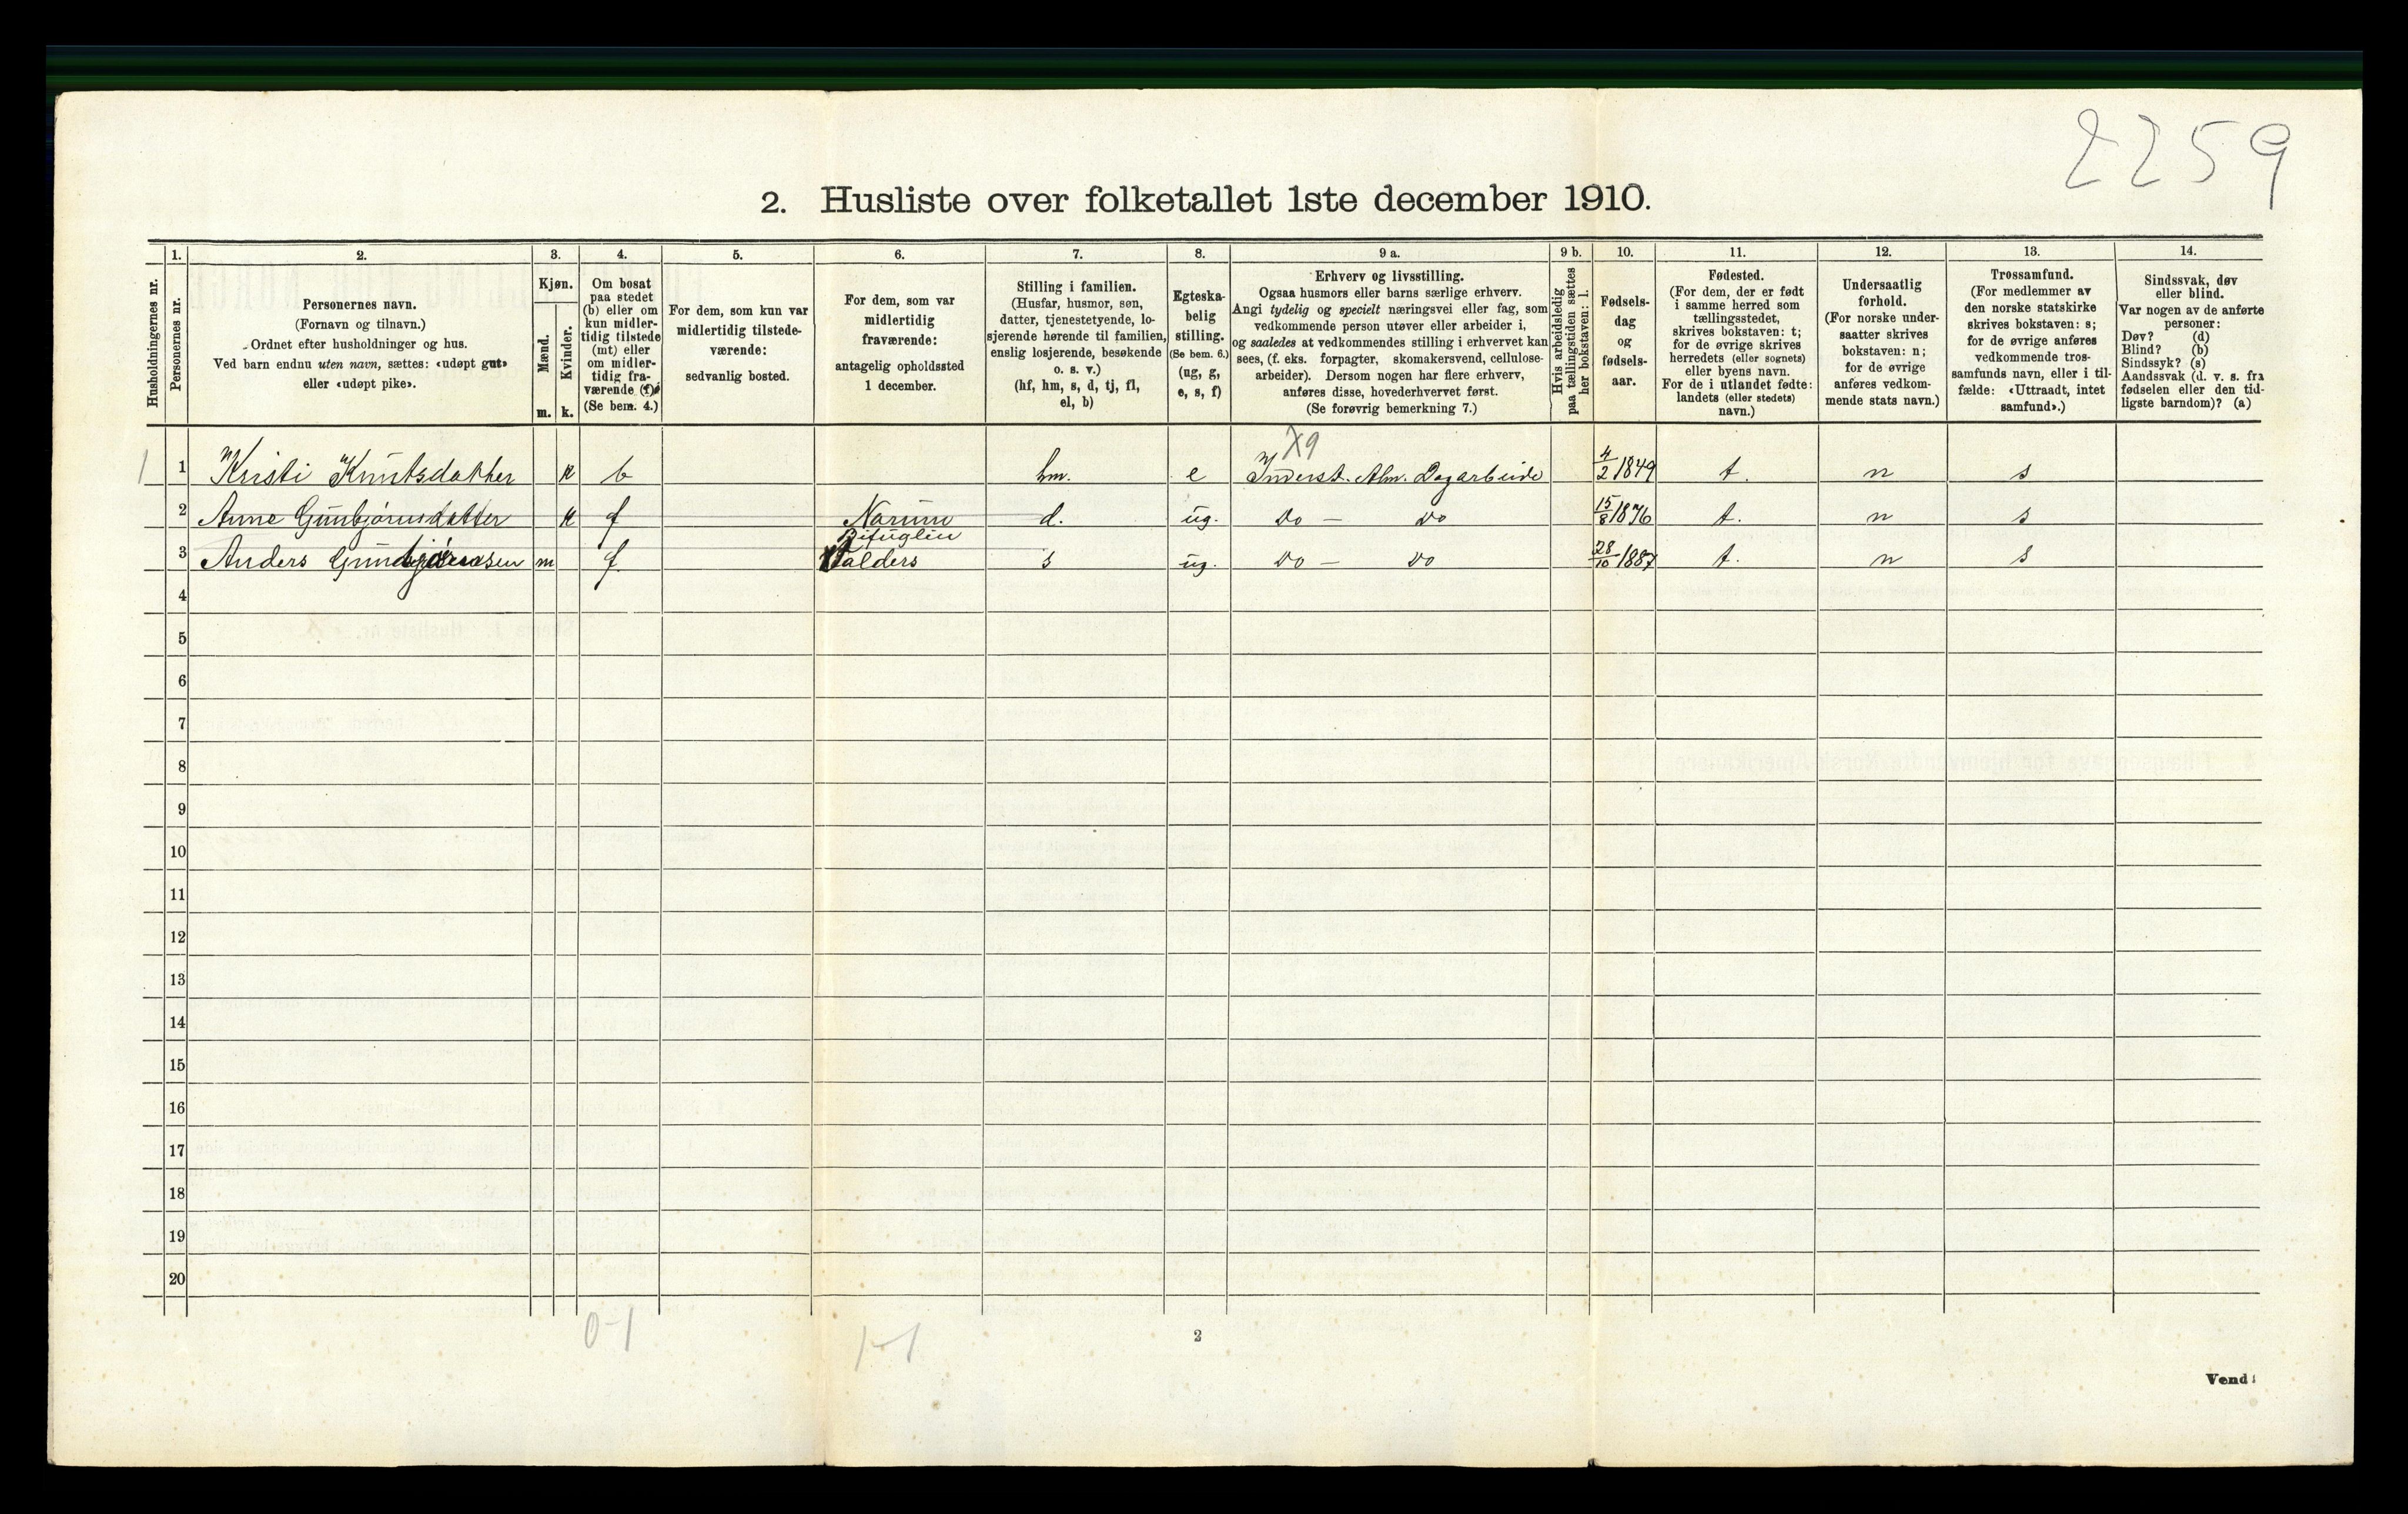 2259
2. Husliste over folketallet 1ste december 1910.
Husholdningernes nr.
1. Personernes nr.
2. Personernes navn.
(Fornavn og tilnavn.)
Ordnet efter husholdninger og hus.
Ved barn endnu uten navn, sættes: «udøpt gut»
eller «udøpt pike».
3. Kjøn.
Mænd. m.
Kvinder. k.
4. Om bosat
paa stedet
(b) eller om
kun midler-
tidig tilstede
(mt) eller
om midler-
tidig fra-
værende (f).
(Se bem. 4.)
5. For dem, som kun var
midlertidig tilstede-
værende:
sedvanlig bosted.
6. For dem, som var
midlertidig
fraværende:
antagelig opholdssted
1 december.
7. Stilling i familien.
(Husfar, husmor, søn,
datter, tjenestetyende, lo-
sjerende hørende til familien,
enslig losjerende, besøkende
o. s. v.)
(hf, hm, s, d, tj, fl,
el, b)
8. Egteska-
belig
stilling.
(Se bem. 6.)
(ug, g,
e, s, f)
9 a. Erhverv og livsstilling.
Ogsaa husmors eller barns særlige erhverv.
Angi tydelig og specielt næringsvei eller fag, som
vedkommende person utøver eller arbeider i,
og saaledes at vedkommendes stilling i erhvervet kan
sees, (f. eks. forpagter, skomakersvend, cellulose-
arbeider). Dersom nogen har flere erhverv,
anføres disse, hovederhvervet først.
(Se forøvrig bemerkning 7.)
9 b. Hvis arbeidsledig
paa tællingstiden sættes
her bokstaven: l.
10. Fødsels-
dag
og
fødsels-
aar.
11. Fødested.
(For dem, der er født
i samme herred som
tællingsstedet,
skrives bokstaven: t;
for de øvrige skrives
herredets (eller sognets)
eller byens navn.
For de i utlandet fødte:
landets (eller stedets)
navn.)
12. Undersaatlig
forhold.
(For norske under-
saatter skrives
bokstaven: n;
for de øvrige
anføres vedkom-
mende stats navn.)
13. Trossamfund.
(For medlemmer av
den norske statskirke
skrives bokstaven: s;
for de øvrige anføres
vedkommende tros-
samfunds navn, eller i til-
fælde: «Uttraadt, intet
samfund».)
14. Sindssvak, døv
eller blind.
Var nogen av de anførte
personer:
Døv? (d)
Blind? (b)
Sindssyk? (s)
Aandssvak (d. v. s. fra
fødselen eller den tid-
ligste barndom)? (a)
X9
1 1 Kristi Knutsdatter k b hm. e Inderst. Alm. Dagarbeide 4/2 1849 t. n s
2 Anne Gunbjørnsdatter k f Narum d. ug. do — do 15/8 1876 t. n s
3 Anders Gunbjørnsen m f Valders s ug. do — do 28/10 1887 t. n s
4
5
6
7
8
9
10
11
12
13
14
15
16
17
18
19
20
0-1
1-1
2
Vend!